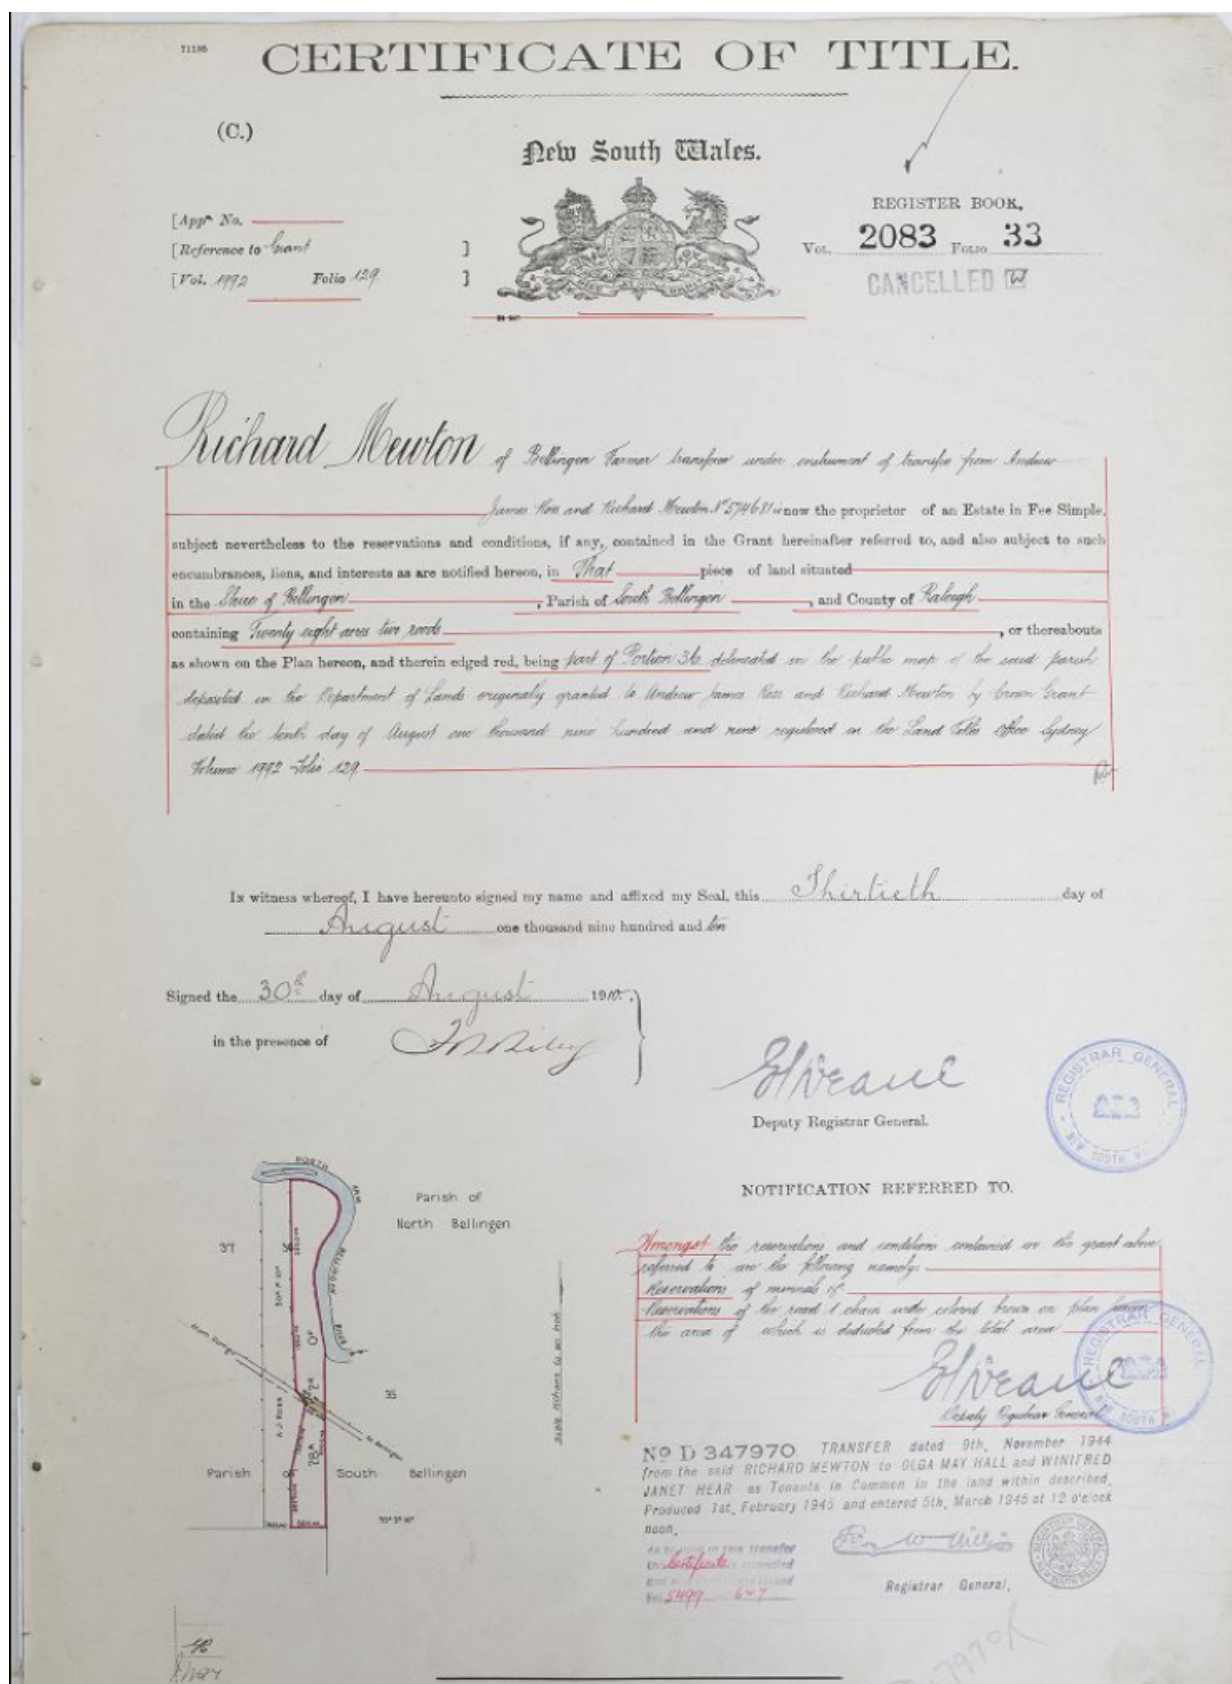 71186
CERTIFICATE OF TITLE.
(C.)
New South Wales.
[Appn No.
[Reference to Grant ]
[Vol. 1992 Folio 129 ]
REGISTER BOOK,
Vol. 2083 Folio 33
CANCELLED
Richard Mewton of Bellingen Farmer transferee under instrument of transfer from Andrew
James Ross and Richard Mewton No 574681 is now the proprietor of an Estate in Fee Simple,
subject nevertheless to the reservations and conditions, if any, contained in the Grant hereinafter referred to, and also subject to such
encumbrances, liens, and interests as are notified hereon, in That piece of land situated
in the Shire of Bellingen, Parish of South Bellingen, and County of Raleigh
containing Twenty eight acres two roods, or thereabouts
as shown on the Plan hereon, and therein edged red, being part of Portion 36 delineated in the public map of the said parish
deposited in the Department of Lands originally granted to Andrew James Ross and Richard Mewton by Crown Grant
dated the tenth day of August one thousand nine hundred and nine registered in the Land Titles Office Sydney
Volume 1992 Folio 129
In witness whereof, I have hereunto signed my name and affixed my Seal, this Thirtieth day of
August one thousand nine hundred and ten
Signed the 30th day of August 1910.
in the presence of
Deputy Registrar General.
REGISTRAR GENERAL
NEW SOUTH
NOTIFICATION REFERRED TO.
Amongst the reservations and conditions contained in the grant above
referred to are the following namely:
Reservations of minerals &c
Reservations of the road 1 chain wide colored brown on plan hereon
the area of which is deducted from the total area
REGISTRAR GENERAL
SOUTH
Deputy Registrar General
No D 347970 TRANSFER dated 9th. November 1944
from the said RICHARD MEWTON to OLGA MAY HALL and WINIFRED
JANET HEAR as Tenants in Common in the land within described.
Produced 1st. February 1945 and entered 5th. March 1945 at 12 o'clock
noon.
in this transfer
Certificate cancelled
issued
Vol 5499 647
Registrar General.
REGISTRAR GENERAL
NEW SOUTH WALES
NORTH
ARM
RIVER
Parish of
North Bellingen
37
35
A J Ross
to Bellingen
28A 2R 0P
Parish of South Bellingen
Scale 10 chains to an inch